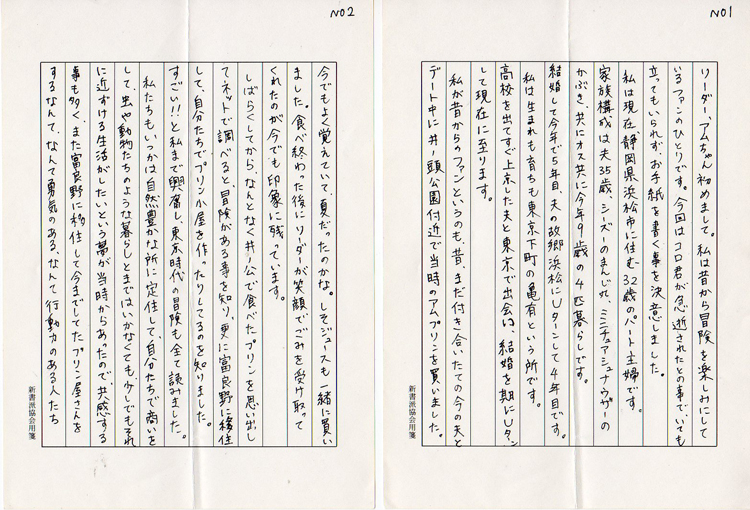 NO1
リーダー、アムちゃん初めまして。私は昔から冒険を楽しみにして
いるファンのひとりです。今回はコロ君が急逝されたとの事で、いても
立ってもいられずお手紙を書く事を決意しました。
私は現在、静岡県浜松市に住む32歳のパート主婦です。
家族構成は夫35歳、シーズーのまんじ丸、ミニチュアシュナウザーの
かぶき、共にオス共に今年9歳の4匹暮らしです。
結婚して今年で5年目、夫の故郷浜松にUターンして4年目です。
私は生まれも育ちも東京下町の亀有という所です。
高校を出てすぐ上京した夫と東京で出会い、結婚を期にUターン
して現在に至ります。
私が昔からのファンというのも、昔、まだ付き合いたての今の夫と
デート中に井の頭公園付近で当時のアムプリンを買いました。
新書派協会用箋
NO2
今でもよく覚えていて、夏だったのかな。しそジュースも一緒に買い
ました。食べ終わった後にリーダーが笑顔でごみを受け取って
くれたのが今でも印象に残っています。
しばらくしてから、なんとなく井の公で食べたプリンを思い出し
てネットで調べると冒険がある事を知り、更に富良野に移住
して、自分たちでプリン小屋を作ったりしてるのを知りました。
すごい!!と私まで興奮し、東京時代の冒険も全て読みました。
私たちもいつかは自然豊かな所に定住して、自分たちで商いを
して、虫や動物たちのような暮らしとまではいかなくても、少しでもそれ
に近ずける生活がしたいという夢が当時からあったので、共感する
事も多く、また富良野に移住して今までしてたプリン屋さんを
するなんて、なんて勇気のある、なんて行動力のある人たち
新書派協会用箋